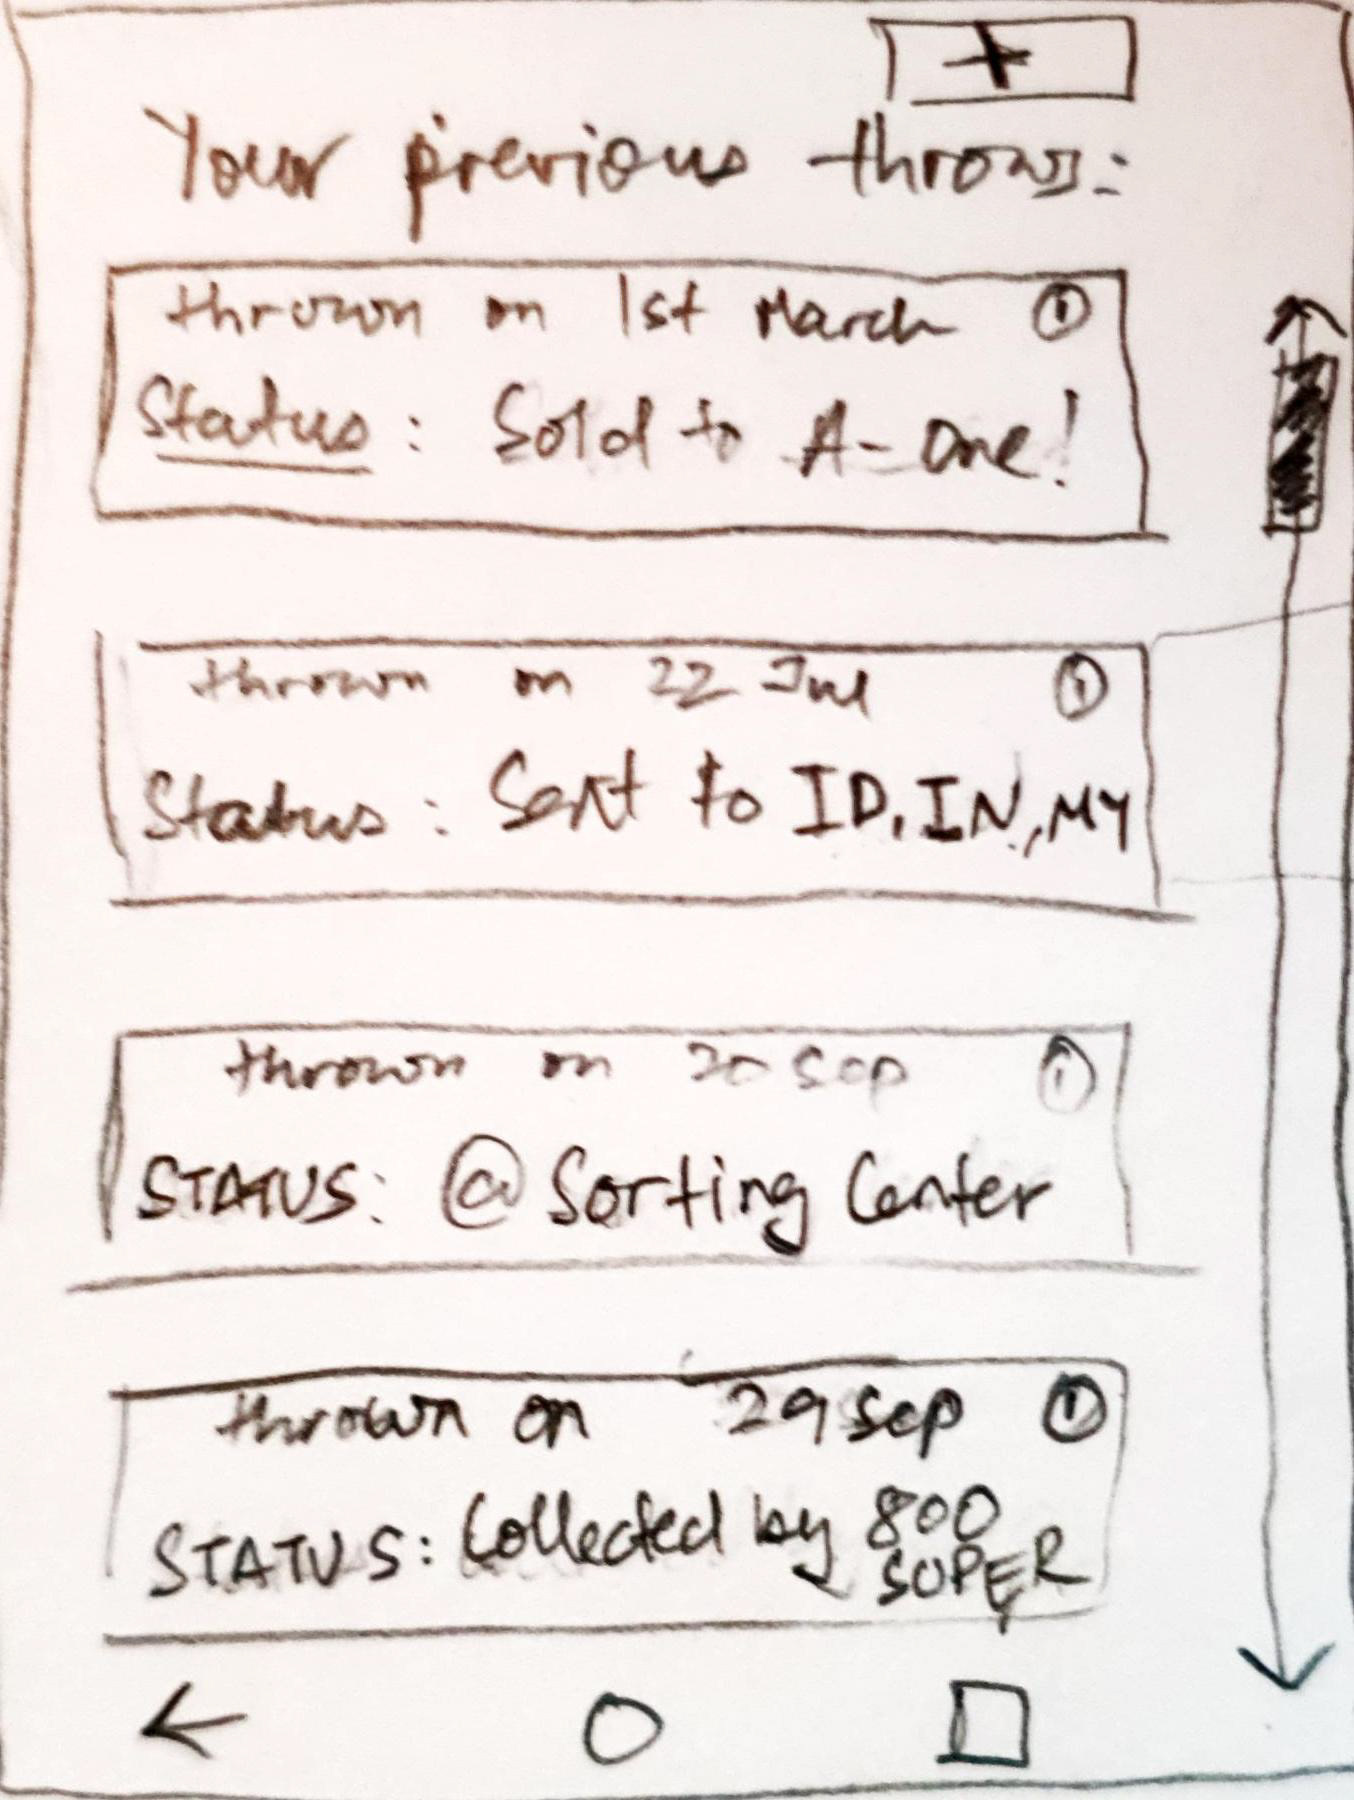 +
Your previous throws:
thrown on 1st March ①
Status: Sold to A-one!
thrown on 22 Jul ①
Status: Sent to ID, IN, MY
thrown on 20 Sep ①
STATUS: @ Sorting Center
thrown on 29 Sep ①
STATUS: Collected by 800
SUPER